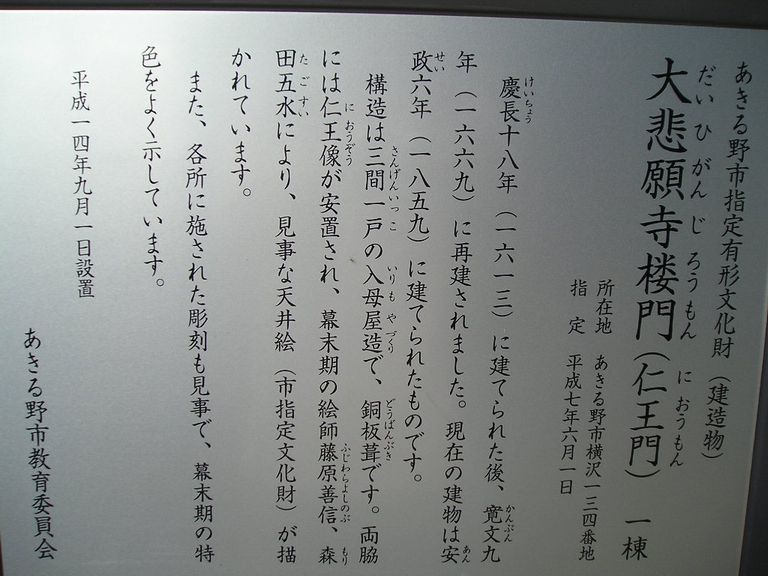 あきる野市指定有形文化財（建造物）
だいひがんじろうもん　におうもん
大悲願寺楼門（仁王門）　一棟
所在地　あきる野市横沢一三四番地
指定　平成七年六月一日
けいちょう　かんぶん
慶長十八年（一六一三）に建てられた後、寛文九
あん
年（一六六九）に再建されました。現在の建物は安
せい
政六年（一八五九）に建てられたものです。
さんげんいっこ　いりもやづくり　どうばんぶき
構造は三間一戸の入母屋造で、銅板葺です。両脇
におうぞう　ふじわらよしのぶ　もり
には仁王像が安置され、幕末期の絵師藤原善信、森
たごすい
田五水により、見事な天井絵（市指定文化財）が描
かれています。
また、各所に施された彫刻も見事で、幕末期の特
色をよく示しています。
平成一四年九月一日設置
あきる野市教育委員会